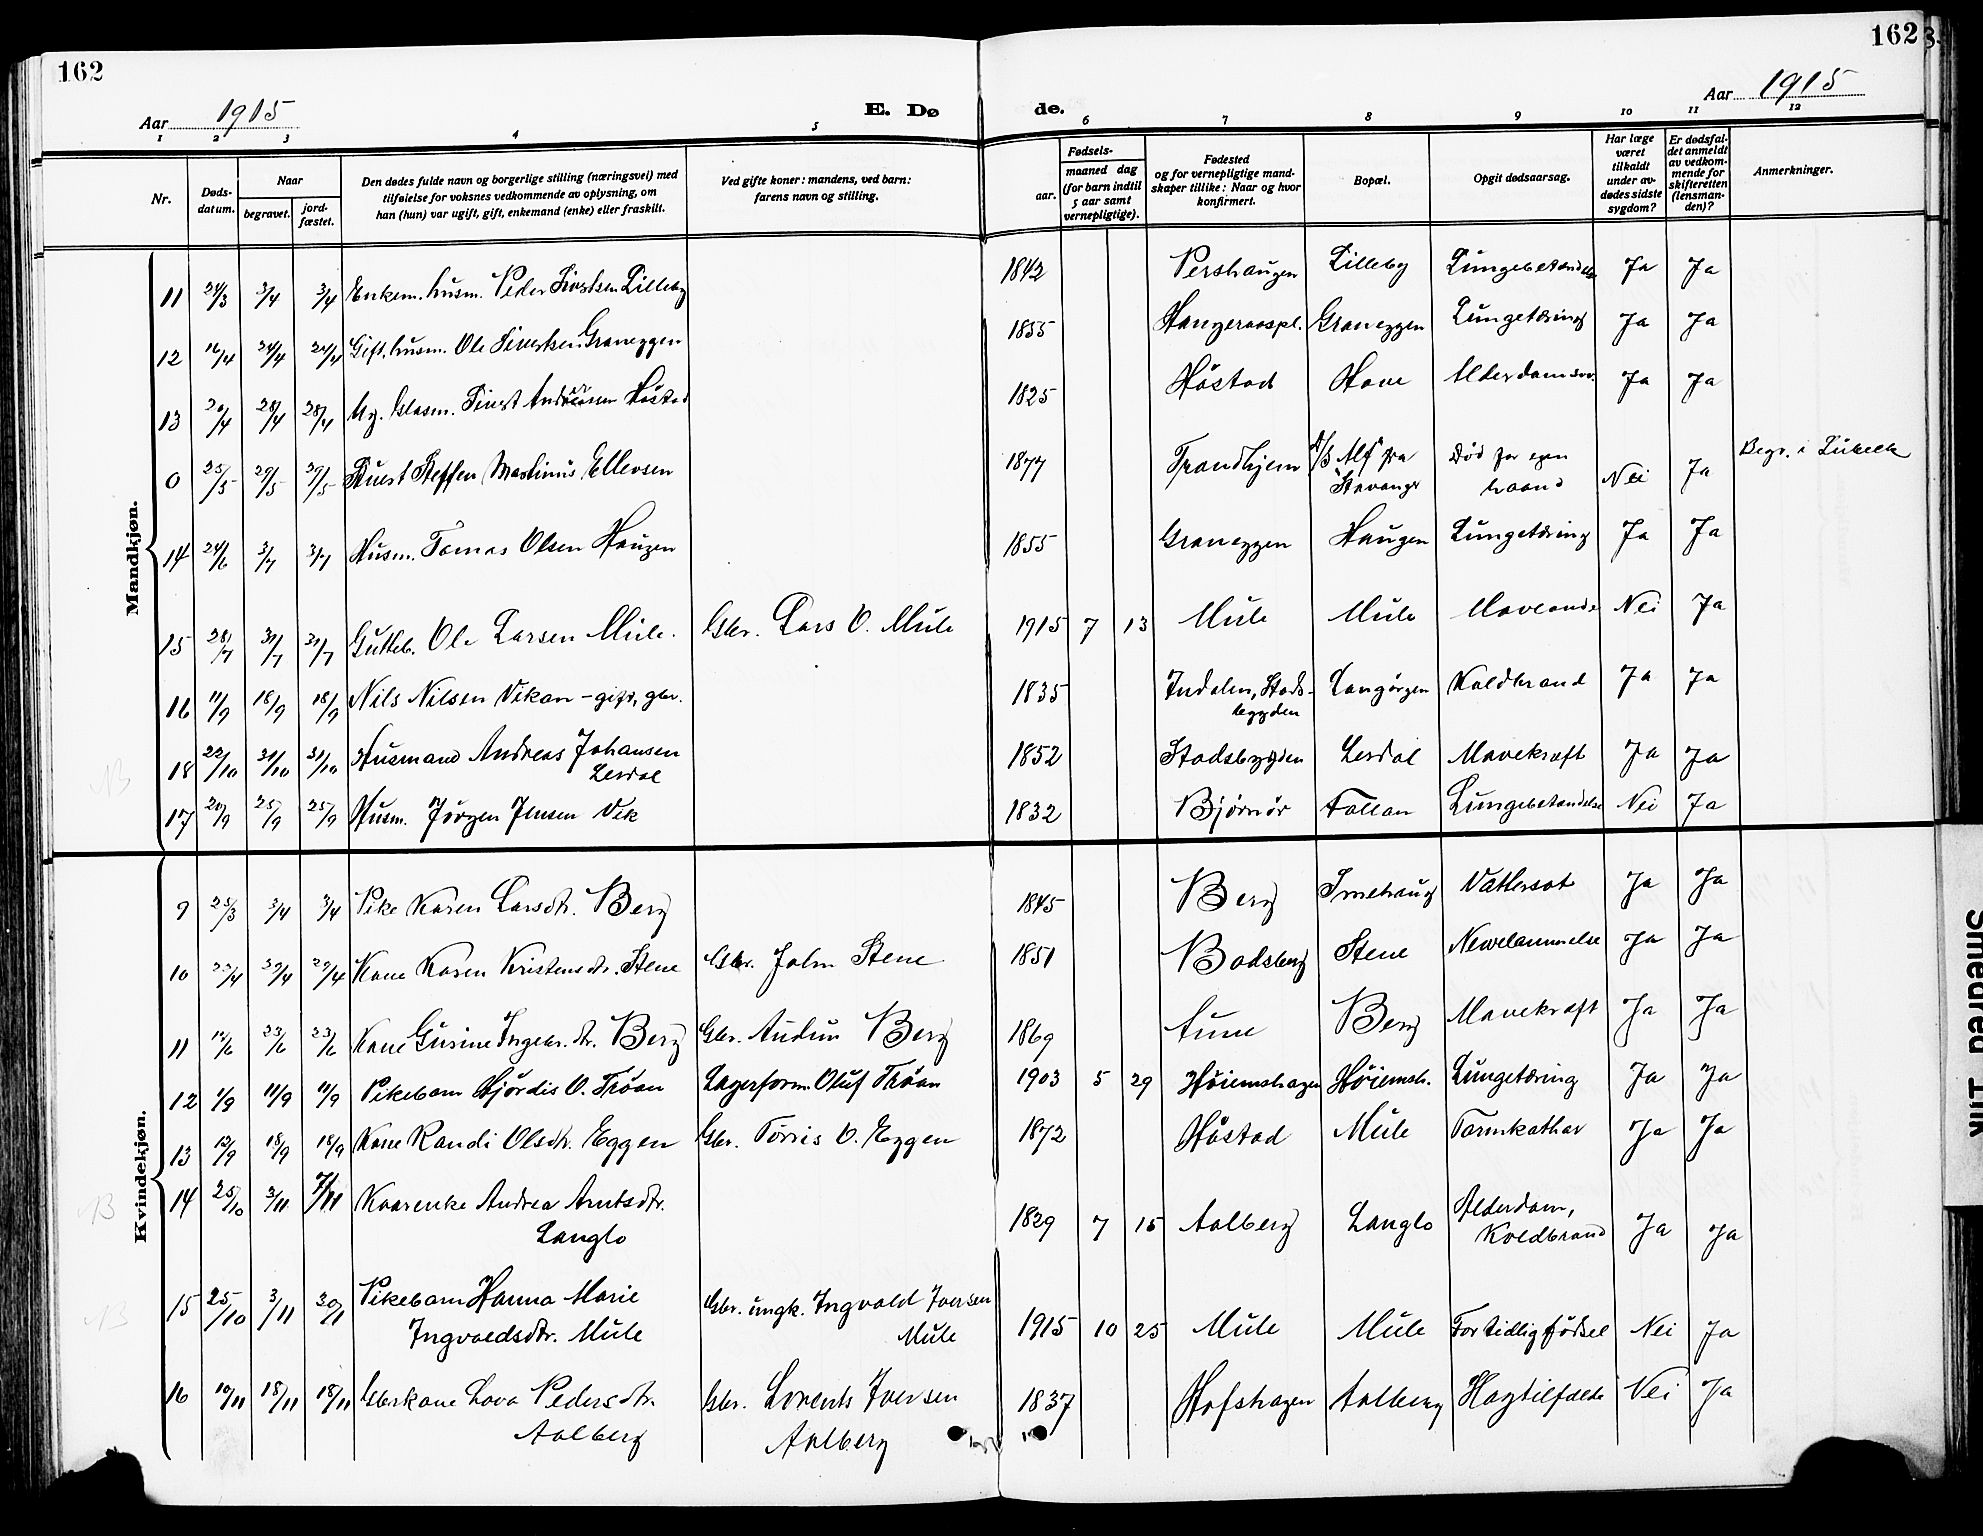 162
162
Aar 1915
E. Dø
de.
Aar 1915
1 2 3 4 5 6 7 8 9 10 11 12
Nr.
Døds-
datum.
Naar
begravet.
jord-
fæstet.
Den dødes fulde navn og borgerlige stilling (næringsvei) med
tilføielse for voksnes vedkommende av oplysning, om
han (hun) var ugift, gift, enkemand (enke) eller fraskilt.
Ved gifte koner: mandens, ved barn:
farens navn og stilling.
Fødsels-
aar.
maaned dag
(for barn indtil
5 aar samt
vernepligtige).
Fødested
og for vernepligtige mand-
skaper tillike: Naar og hvor
konfirmert.
Bopæl.
Opgit dødsaarsag.
Har læge
været
tilkaldt
under av-
dødes sidste
sygdom?
Er dødsfal-
det anmeldt
av vedkom-
mende for
skifteretten
(lensman-
den)?
Anmerkninger.
Mandkjøn.
11 24/3 3/4 3/4 Enkem. husm. Peder Lilleby 1842 Pershaugen Lilleby Lungebetændelse Ja Ja
12 16/4 24/4 24/4 Gift. husm. Ole Sivertsen Graneggen 1855 Haugeraaspl. Graneggen Lungetæring Ja Ja
13 20/4 28/4 28/4 Ug. Sivert Høstad 1825 Høstad Hove Alderdomssv. Ja Ja
0 25/5 29/5 29/5 Steffen Martinus Ellevsen 1877 Trondhjem D/S Alf fra
Stavanger Død for egen
haand Nei Ja Begr. i Lübeck
14 24/6 3/7 3/7 Husm. Tomas Olsen Haugen 1855 Graneggen Haugen Lungetæring Ja Ja
15 28/7 31/7 31/7 Gutteb. Ole Larsen Mule. Gbr. Lars O. Mule 1915 7 13 Mule Mule Maveonde Nei Ja
16 11/9 18/9 18/9 Nils Nilsen Vikan - gift, gbr. 1835 Indalen, Stads-
bygden Langørgen Koldbrand Ja Ja
18 22/10 31/10 31/10 Husmand Andreas Johansen
Lerdal 1852 Stadsbygden Lerdal Mavekræft Ja Ja
17 20/9 25/9 25/9 Husm. Jørgen Jensen Vik 1832 Bjørnør Follan Lungebetændelse Nei Ja
Kvindekjøn.
9 25/3 3/4 3/4 Pike Karen Larsdtr. Berg 1845 Berg Vattersot Ja Ja
10 29/4 29/4 Kone Karen Kristensdtr. Stene Gbr. John Stene 1851 Bodsberg Stene Ja Ja
11 12/6 23/6 23/6 Kone Gurine Ingebr. dtr. Berg Gbr. Audun Berg 1869 Aune Berg Mavekræft Ja Ja
12 1/9 11/9 11/9 Pikebarn Hjørdis O. Trøan Lagerform. Oluf Trøan 1903 5 29 Høiemshagen Høiemsh. Lungetæring Ja Ja
13 12/9 18/9 18/9 Kone Randi Olsdtr. Eggen Gbr. Torris O. Eggen 1872 Høstad Mule Tarmkathar Ja Ja
14 25/10 3/11 7/11 Kaarenke Andrea Arntsdtr.
Langlo 1829 7 15 Aalberg Langlo Alderdom,
Koldbrand Ja Ja
15 25/10 3/11 Pikebarn Hanna Marie
Ingvaldsdtr. Mule Gbr. ungk. Ingvald Iversen
Mule 1915 10 25 Mule Mule For tidlig fødsel Nei Ja
16 10/11 18/11 18/11 Gbrkone Lova Pedersdtr.
Aalberg Gbr. Lorents Iversen
Aalberg 1837 Hofshagen Aalberg Nei Ja
Smedred Link